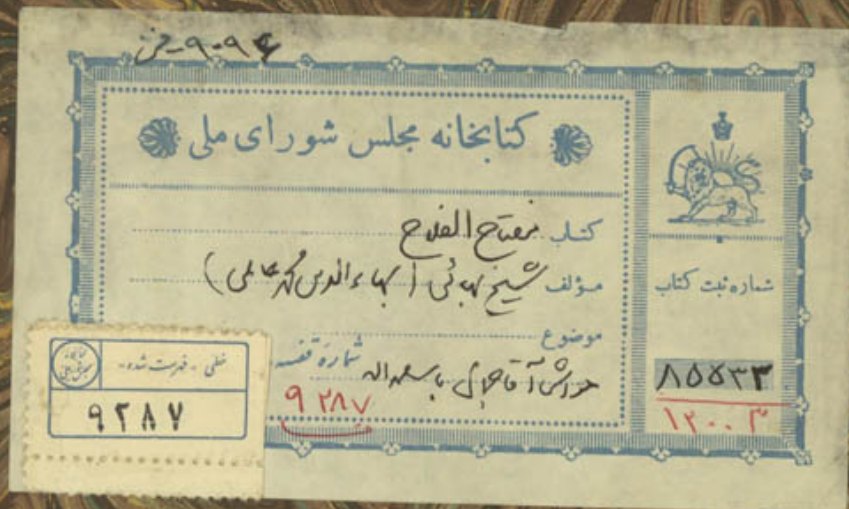 ۹۰۹۴-ف
کتابخانه مجلس شورای ملی
کتاب مفتاح الفلاح
مؤلف شیخ بهائی (بهاءالدین محمد عاملی)
موضوع
شماره قفسه
۹۲۸۷
شماره ثبت کتاب
۸۵۵۳۳
۱۲۰۰۳
خطی - فهرست شده -
۹۲۸۷